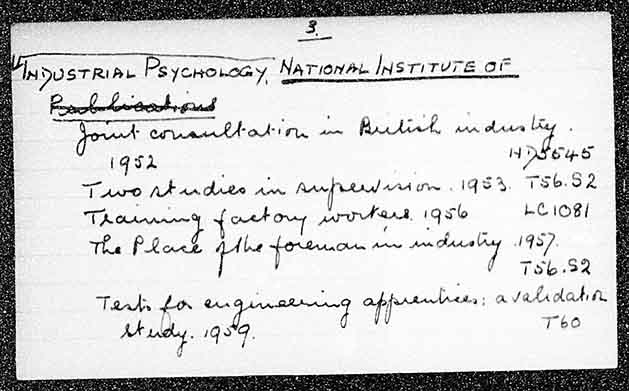 3.
INDUSTRIAL PSYCHOLOGY, NATIONAL INSTITUTE OF
Publications
Joint consultation in British industry.
1952 HD5545
Two studies in supervision. 1953. T56.S2
Training factory workers. 1956 LC1081
The Place of the foreman in industry. 1957.
T56.S2
Tests for engineering apprentices: a validation
study. 1959. T60